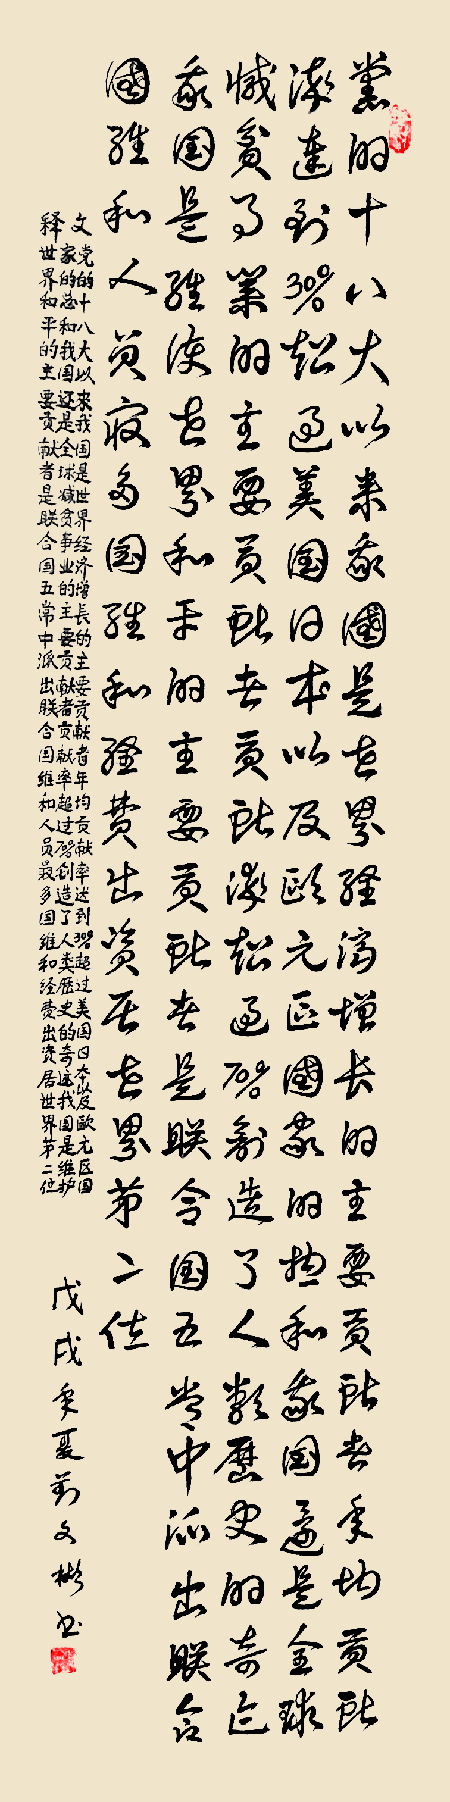 黨的十八大以来我國是世界經濟增长的主要贡献者年均贡献
率達到30%超过美国日本以及欧元区國家的总和我国還是全球
减贫事業的主要贡献者贡献率超过70%創造了人類歷史的奇迹
我国是维护世界和平的主要贡献者是联合国五常中派出联合
國维和人员最多国维和经费出资居世界第二位
释文
党的十八大以来我国是世界经济增长的主要贡献者年均贡献率达到30%超过美国日本以及欧元区国
家的总和我国还是全球减贫事业的主要贡献者贡献率超过70%创造了人类歷史的奇迹我国是维护
世界和平的主要贡献者是联合国五常中派出联合国维和人员最多国维和经费出资居世界第二位
戊戌年夏刘文彬书